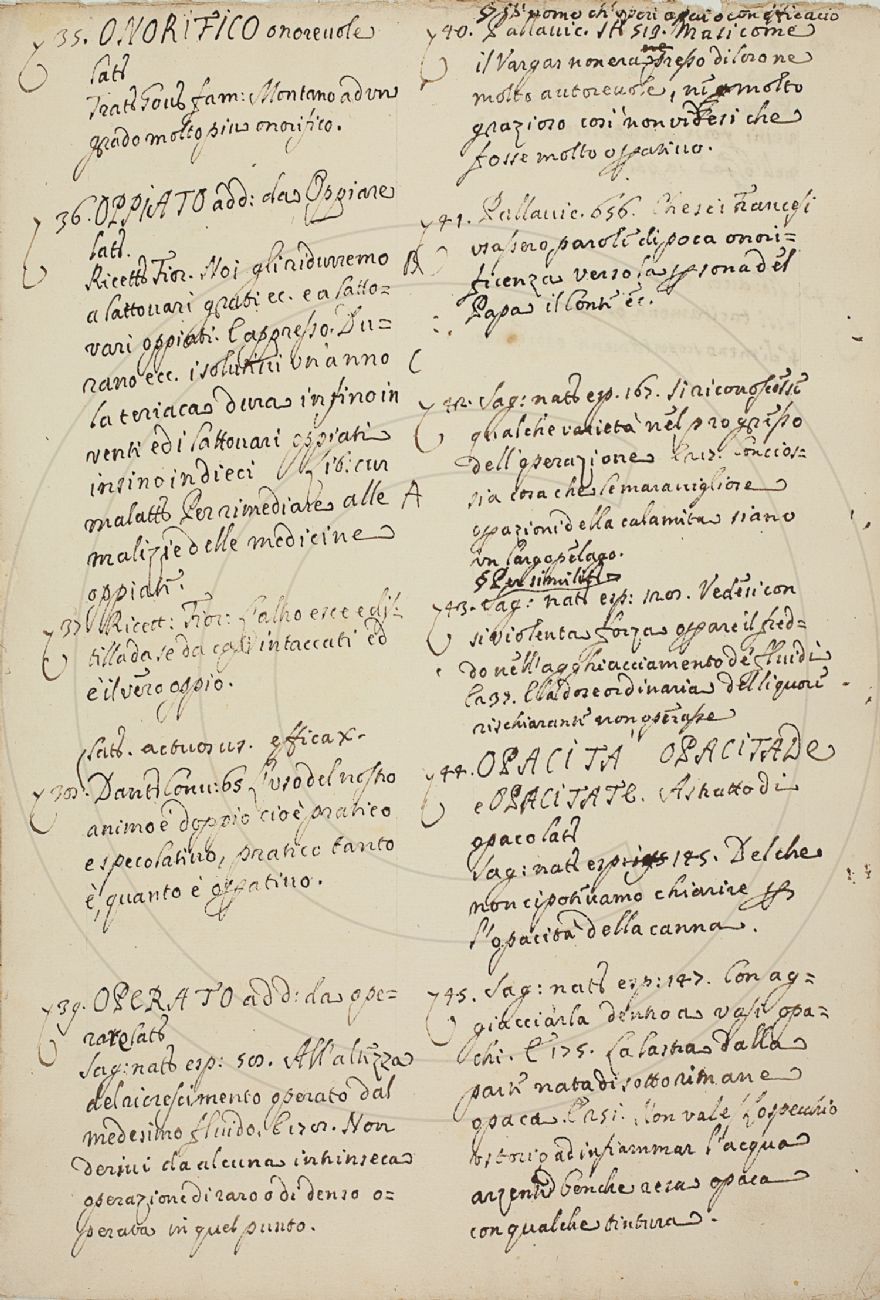 35. ONORIFICO onorevole
latt
Tratt Gov. fam: Montano ad un
grado molto piu onorifico.
36. OPPIATO add: da Oppiare
latt.
Ricett Fior. Noi gli ridurremo
a lattovari grati ec. e a latto=
vari oppiati. E appresso. Du=
rano ecc. i solutivi un anno
la teriaca dura infino in
venti ed i lattovari oppiati
insino in dieci Lib: cur
malatt Per rimediare alle
malizie delle medicine
oppiate.
37. Ricett: Fior: L'altro esce e di=
stilla da se da capi intaccati ed
è il vero oppio.
latt. actuosus. efficax.
38. Dant Conv: 65 L'uso del nostro
animo è doppio cioè pratico
e specolativo, pratico tanto
è, quanto è operativo.
39. OPERATO add: da ope=
rare latt
Sag: natt esp: 58. All'altezza
del ricrescimento operato dal
medesimo fluido. E 178. Non
derivi da alcuna intrinseca
operazione di raro o di denso o=
perata in quel punto.
§ P uomo ch'operi assai o con efficacia
40. Pallavic. St 519. Ma si come
il Vargas non era ne presso di loro ne
molto autorevole, ne molto
grazioso così non videsi che
fosse molto operativo.
41. Pallavic. 656. Che se i Francesi
usassero parole di poca onori=
ficenza verso la persona del
Papa il Conte ec.
B
C
A
42. Sag: natt esp. 167. Si riconoscesse
qualche varietà nel progresso
dell'operazione E 217. Concios=
sia cosa che le maravigliose
operazioni della calamita siano
un largo pelago.
§ Per similit
43. Sag: natt esp: 128. Vedesi con
si violenta forza operare il fred=
do nell'agghiacciamento de' fluidi
E a 37. E la dose ordinaria del liquore
rischiarante non operasse
44. OPACITA OPACITADE
e OPACITATE. Astratto di
opaco latt
Sag: natt esp: 145. Del che
non ci potevamo chiarire per
l'opacità della canna.
45. Sag: natt esp: 147. Con ag=
giacciarla dentro a vasi opa=
chi. E 175. La lastra dalla
parte nata di sotto rimane
opaca. E 251. Non vale lo specchio
ustorio ad infiammar l'acqua
arzente benche resa opaca
con qualche tintura.